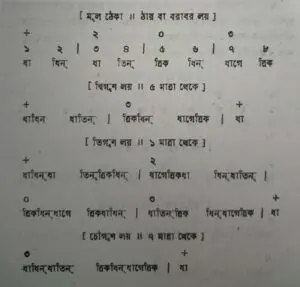 [ মূল ঠেকা ॥ ঠায় বা বরাবর লয় ]
+ ২ ০ ৩
১ ২ | ৩ ৪ | ৫ ৬ | ৭ ৮
ধা ধিন্ ধা তিন্ ত্রিক ধিন্ ধাগে ত্রিক
[ দ্বিগুণ লয় ॥ ৫ মাত্রা থেকে ]
+ ৩ +
ধাধিন ধাতিন্ | ত্রিকধিন্ ধাগেত্রিক | ধা
[ তিগুণ লয় ॥ ১ মাত্রা থেকে ]
+ ২
ধাধিন্‌ধা তিন্‌ত্রিকধিন্ | ধাগেত্রিকধা ধিন্‌ধাতিন্ |
০ ৩ +
ত্রিকধিন্‌ধাগে ত্রিকধাধিন্ | ধাতিন্‌ত্রিক ধিন্‌ধাগেত্রিক | ধা
[ চৌগুণ লয় ॥ ৭ মাত্রা থেকে ]
৩ +
ধাধিন্‌ধাতিন্ ত্রিকধিন্‌ধাগেত্রিক | ধা